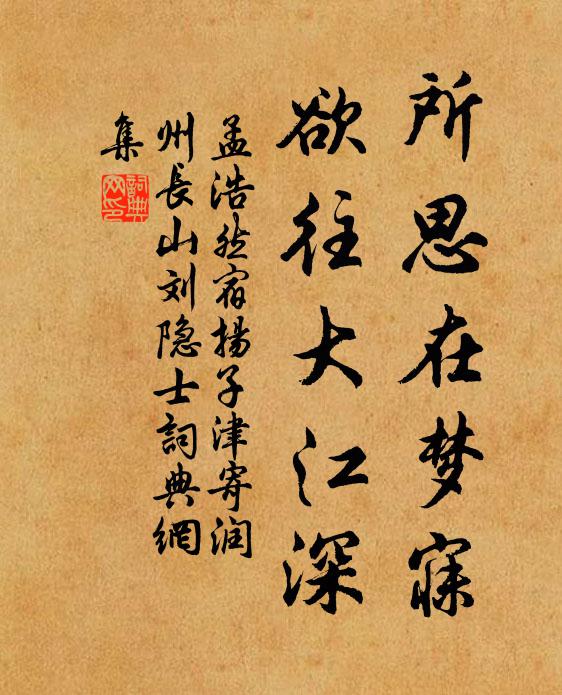 所思在梦寐
欲往大江深
孟浩然宿揚子津寄润
州長山刘隐士詞典網
集
詞典
网印